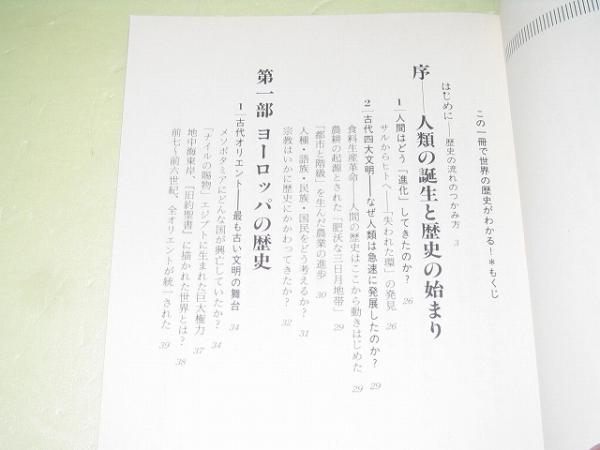 この一冊で世界の歴史がわかる！＊もくじ
はじめに――歴史の流れのつかみ方 3
序――人類の誕生と歴史の始まり
1 人間はどう「進化」してきたのか？ 26
サルからヒトへ――「失われた環」の発見 26
2 古代四大文明――なぜ人類は急速に発展したのか？ 29
食料生産革命――人間の歴史はここから動きはじめた 29
農耕の起源とされた「肥沃な三日月地帯」 29
「都市と階級」を生んだ農業の進歩 30
人種・語族・民族・国民をどう考えるか？ 31
宗教はいかに歴史にかかわってきたか？ 32
第一部 ヨーロッパの歴史
1 古代オリエント――最も古い文明の舞台 34
メソポタミアにどんな国が興亡していたか？ 34
「ナイルの賜物」エジプトに生まれた巨大権力 37
地中海東岸、『旧約聖書』に描かれた世界とは？ 38
前七〜前六世紀、全オリエントが統一された 39